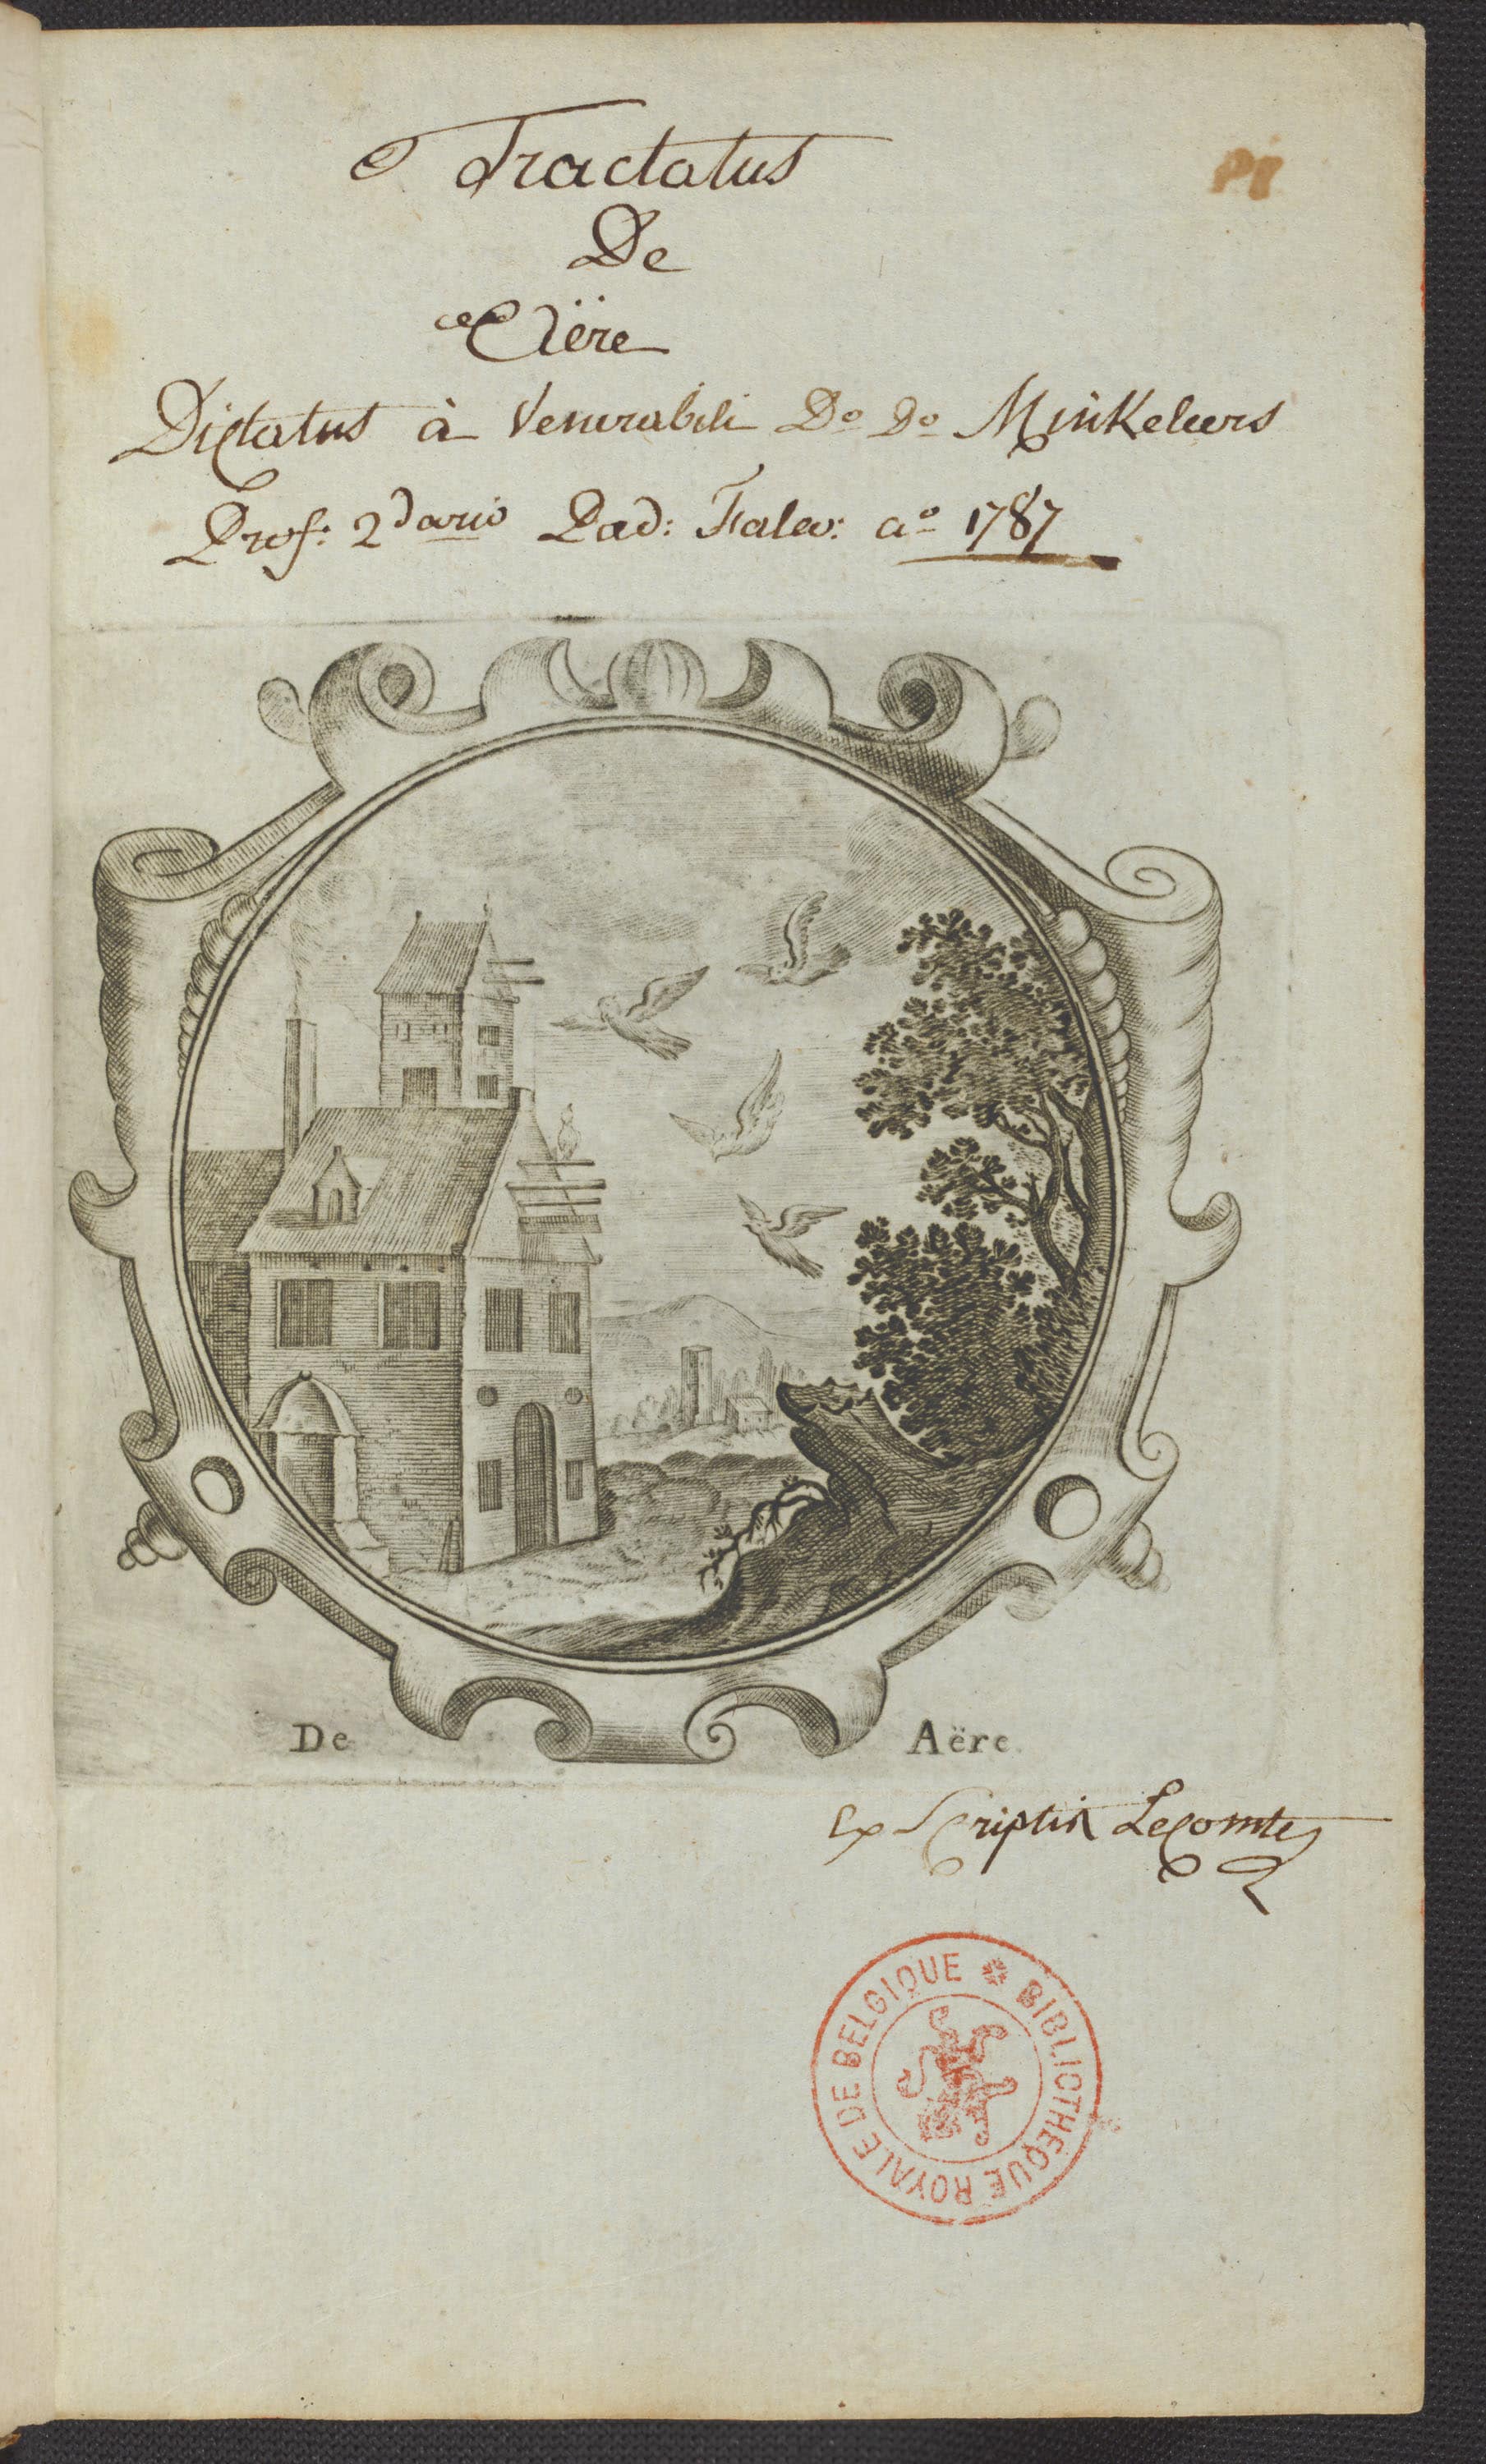 Tractatus
De
Aëre
Dictatus à Venerabili Do Do Minkeleers
Prof: 2dario Pæd: Falco: ao 1787
P1
De Aëre
Ex Scriptis Lecomte
BIBLIOTHÈQUE ROYALE DE BELGIQUE